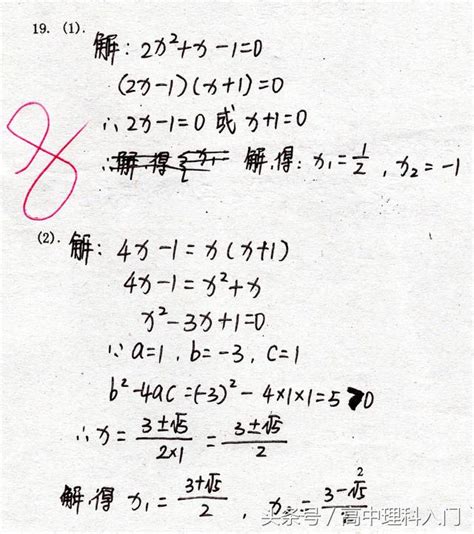 19. (1).
解: 2x²+x-1=0
(2x-1)(x+1)=0
∴2x-1=0 或 x+1=0
解得: x₁=1/2, x₂=-1
8
(2).
解: 4x-1=x(x+1)
4x-1=x²+x
x²-3x+1=0
∵a=1, b=-3, c=1
b²-4ac=(-3)²-4×1×1=5>0
∴x=(3±√5)/(2×1)=(3±√5)/2
解得 x₁=(3+√5)/2, x₂=(3-√5)/2
头条号/高中理科入门